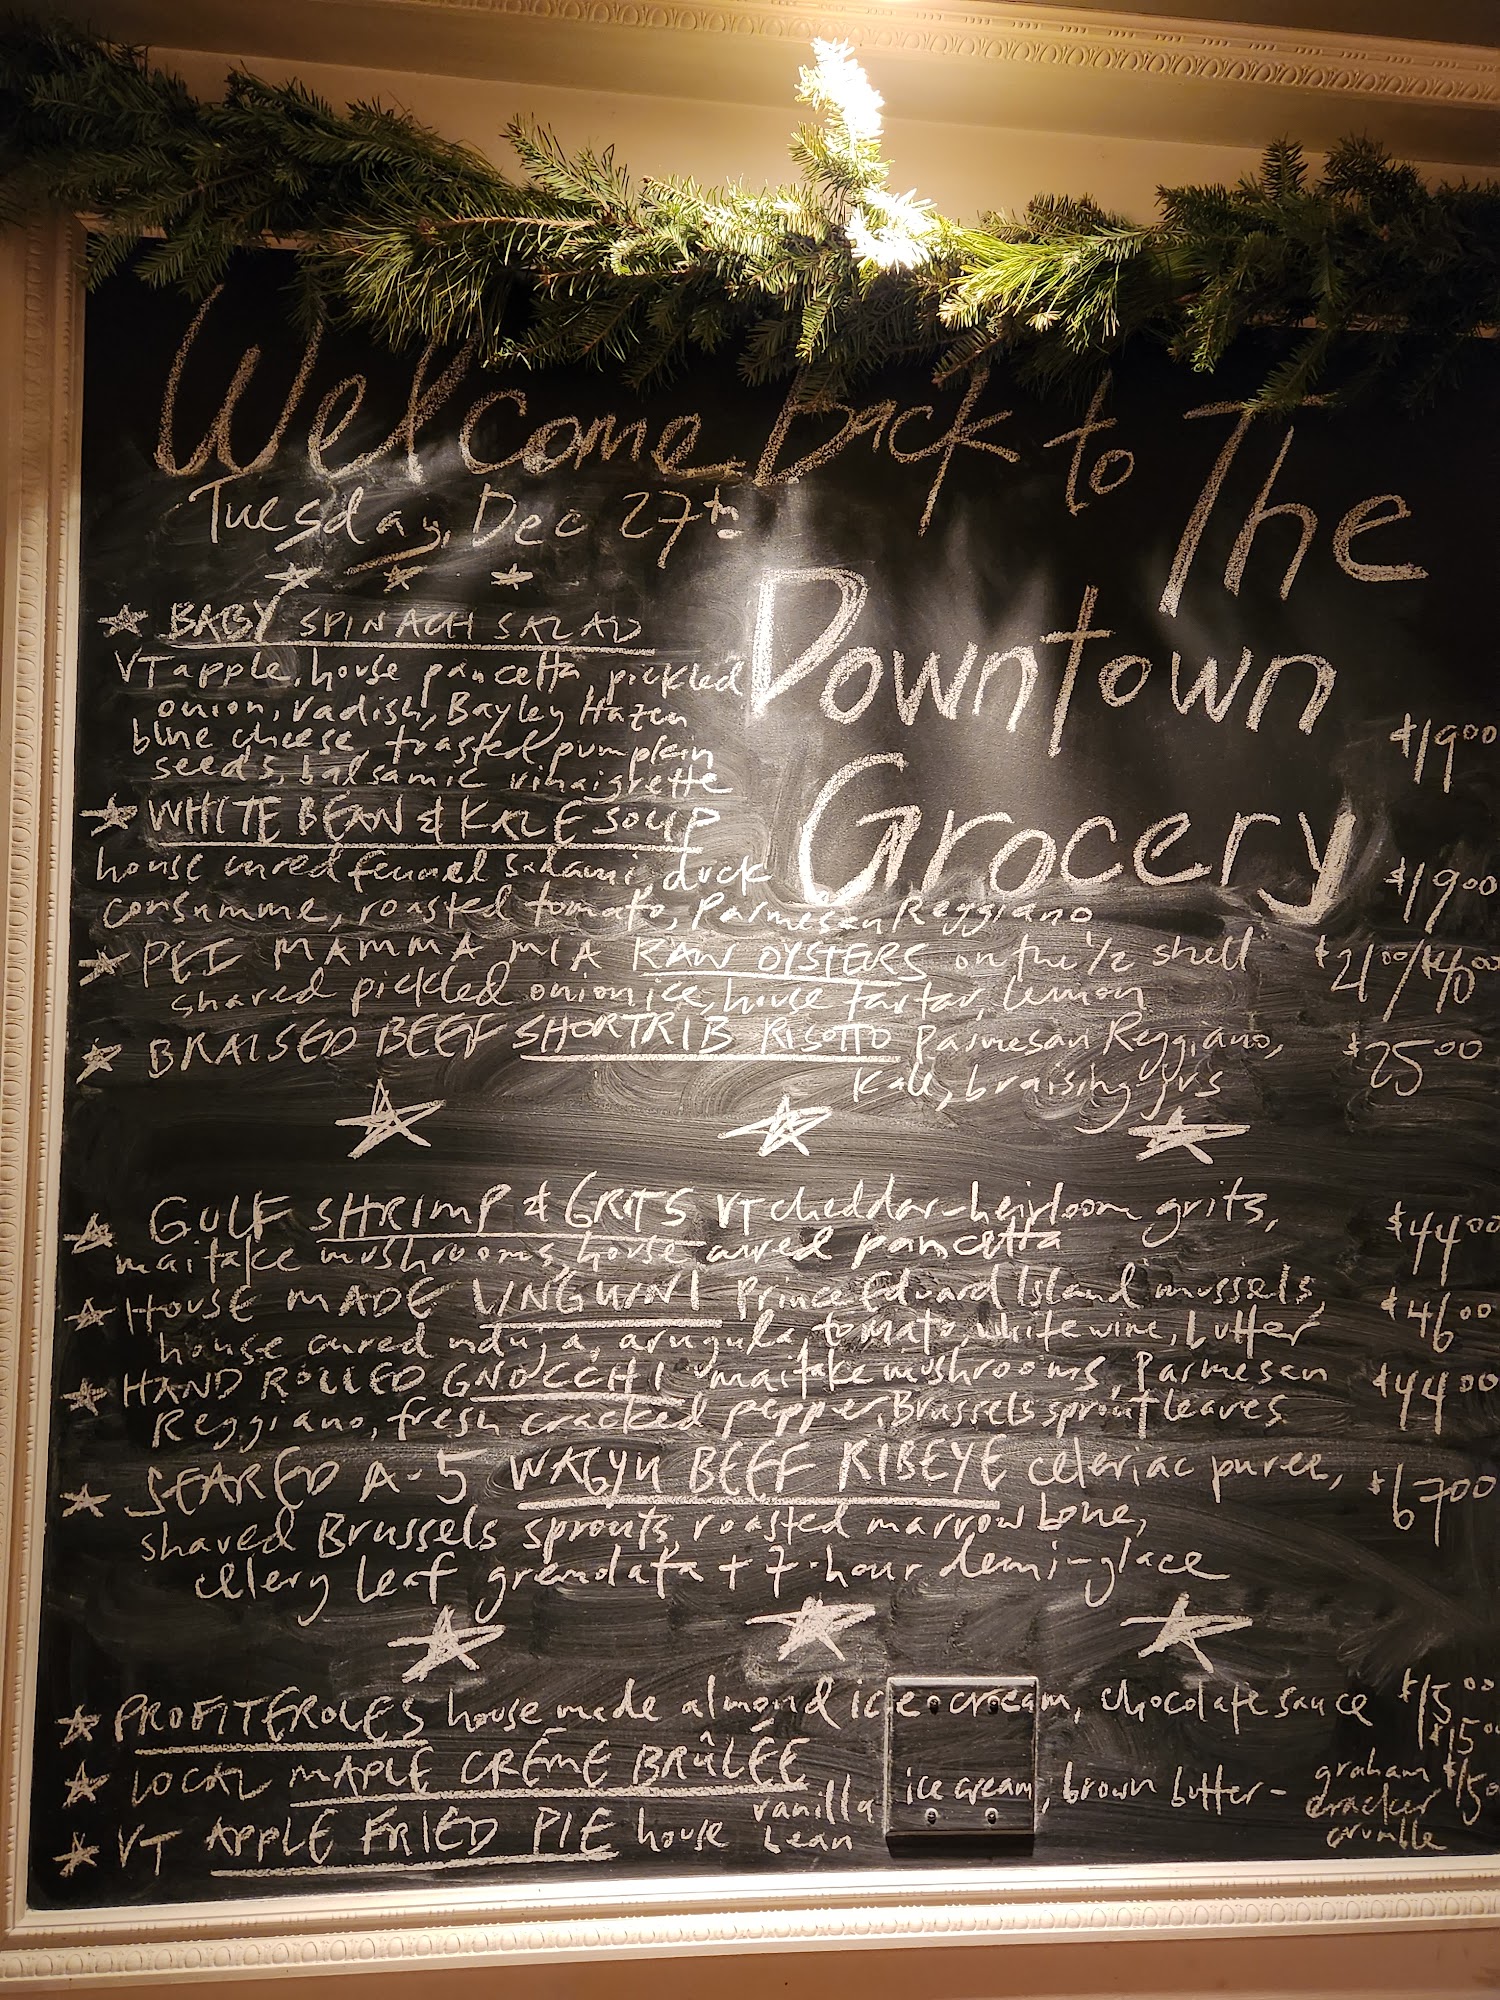 Welcome Back to The
Tuesday, Dec 27th
Downtown
Grocery
BABY SPINACH SALAD
VT apple, house pancetta, pickled
onion, radish, Bayley Hazen
blue cheese, toasted pumpkin
seeds, balsamic vinaigrette
$19.00
WHITE BEAN & KALE SOUP
house cured fennel salami, duck
consumme, roasted tomato, Parmesan Reggiano
$19.00
PEI MAMMA MIA RAW OYSTERS on the 1/2 shell
shaved pickled onion ice, house tartar, lemon
$21.00/$40.00
BRAISED BEEF SHORTRIB RISOTTO Parmesan Reggiano,
Kale, braising jus
$25.00
GULF SHRIMP & GRITS VT cheddar-heirloom grits,
maitake mushrooms, house cured pancetta
$44.00
HOUSE MADE LINGUINI Prince Edward Island mussels,
house cured nduja, arugula, tomato, white wine, butter
$46.00
HAND ROLLED GNOCCHI maitake mushrooms, Parmesan
Reggiano, fresh cracked pepper, Brussels sprout leaves
$44.00
SEARED A-5 WAGYU BEEF RIBEYE celeriac puree,
shaved Brussels sprouts, roasted marrow bone,
celery leaf gremolata + 7-hour demi-glace
$67.00
PROFITEROLES house made almond ice cream, chocolate sauce $15.00
LOCAL MAPLE CRÊME BRÛLÉE $15.00
VT APPLE FRIED PIE house vanilla bean ice cream, brown butter- graham cracker crumble $15.0